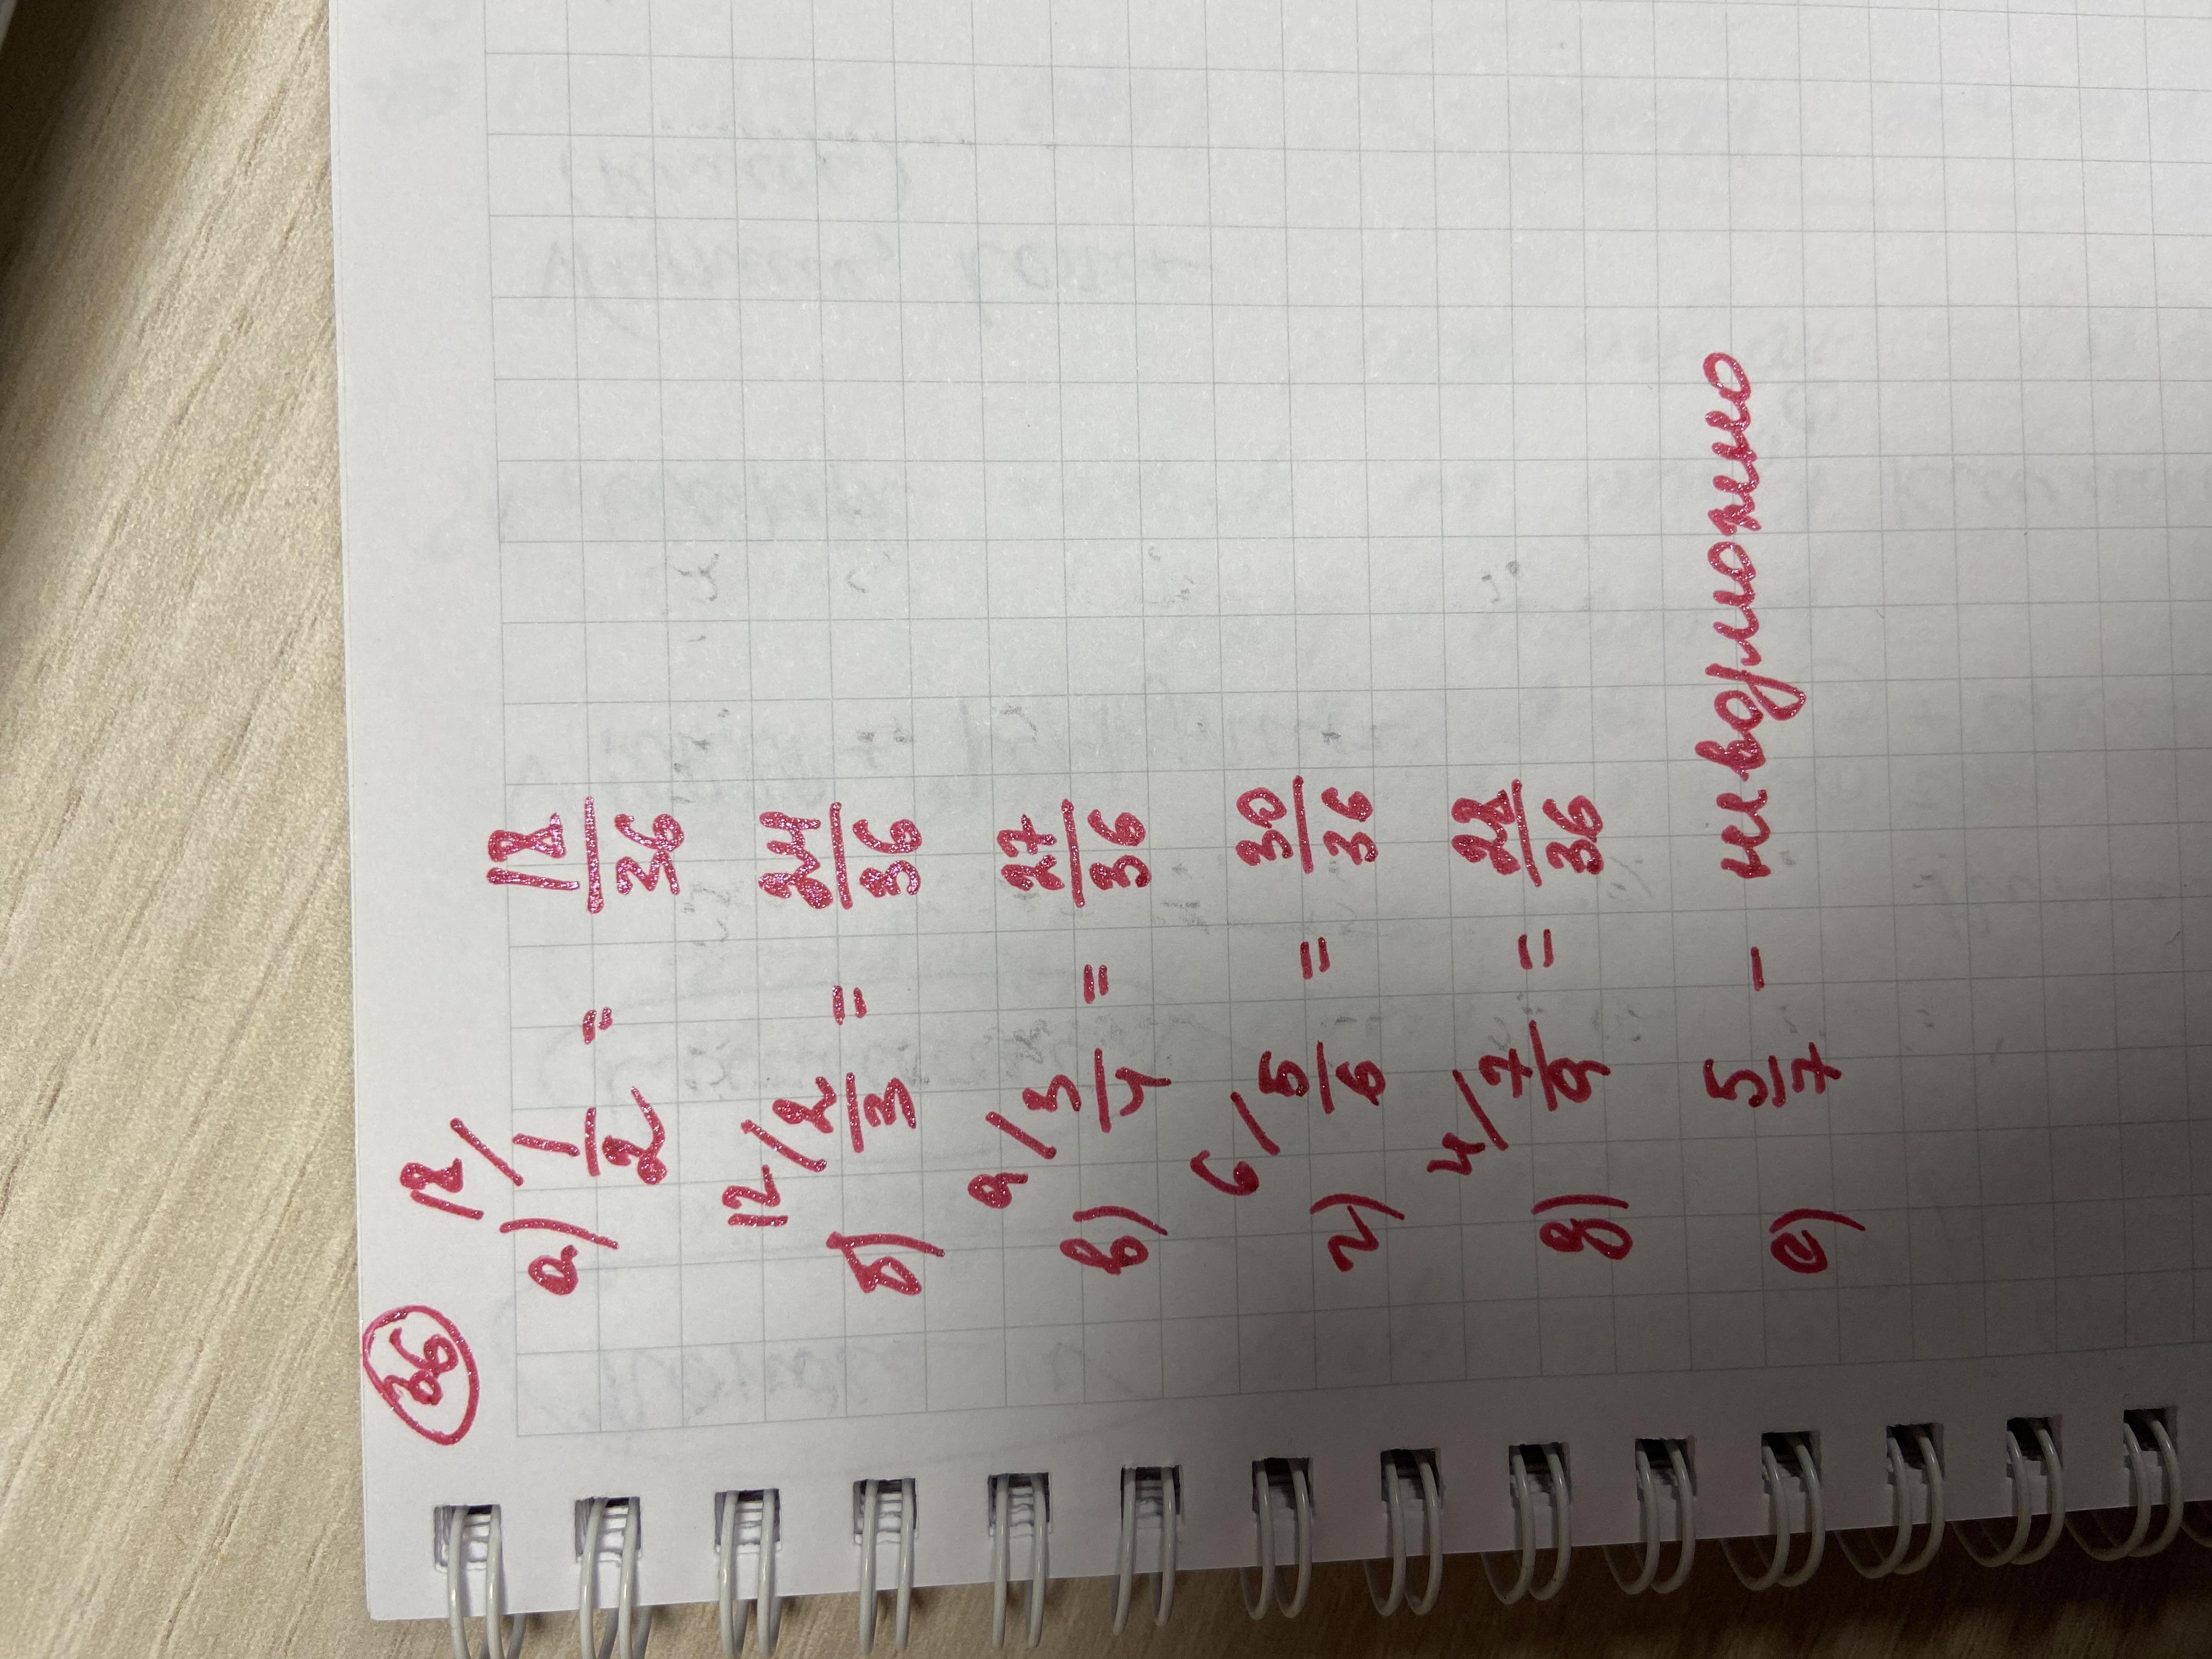 36
а) 18/ 1/2 = 18/36
б) 12/ 2/3 = 24/36
в) 9/ 3/4 = 27/36
г) 6/ 5/6 = 30/36
д) 4/ 7/9 = 28/36
е) 5/7 - невозможно